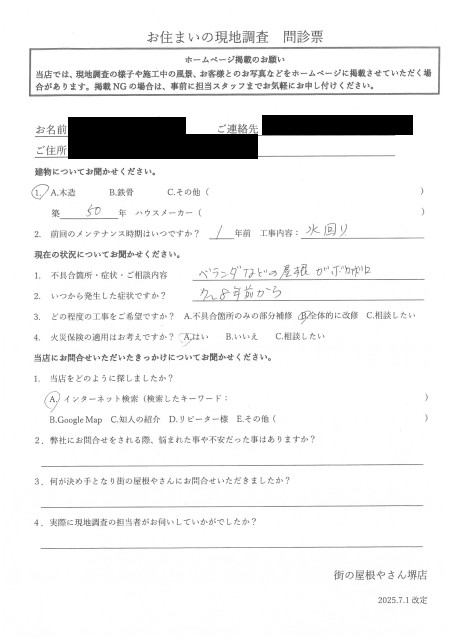 お住まいの現地調査　問診票
ホームページ掲載のお願い
当店では、現地調査の様子や施工中の風景、お客様とのお写真などをホームページに掲載させていただく場
合があります。掲載NGの場合は、事前に担当スタッフまでお気軽にお申し付けください。
お名前　ご連絡先
ご住所
建物についてお聞かせください。
1. A.木造　B.鉄骨　C.その他（　）
築　50　年　ハウスメーカー（　）
2. 前回のメンテナンス時期はいつですか？　1　年前　工事内容：水回り
現在の状況についてお聞かせください。
1. 不具合箇所・症状・ご相談内容　ベランダなどの屋根がボロボロ
2. いつから発生した症状ですか？　8年前から
3. どの程度の工事をご希望ですか？　A.不具合箇所のみの部分補修　B.全体的に改修　C.相談したい
4. 火災保険の適用はお考えですか？　A.はい　B.いいえ　C.相談したい
当店にお問合せいただいたきっかけについてお聞かせください。
1. 当店をどのように探しましたか？
A. インターネット検索（検索したキーワード：　）
B.Google Map　C.知人の紹介　D.リピーター様　E.その他（　）
2. 弊社にお問合せをされる際、悩まれた事や不安だった事はありますか？
3. 何が決め手となり街の屋根やさんにお問合せいただきましたか？
4. 実際に現地調査の担当者がお伺いしていかがでしたか？
街の屋根やさん堺店
2025.7.1 改定